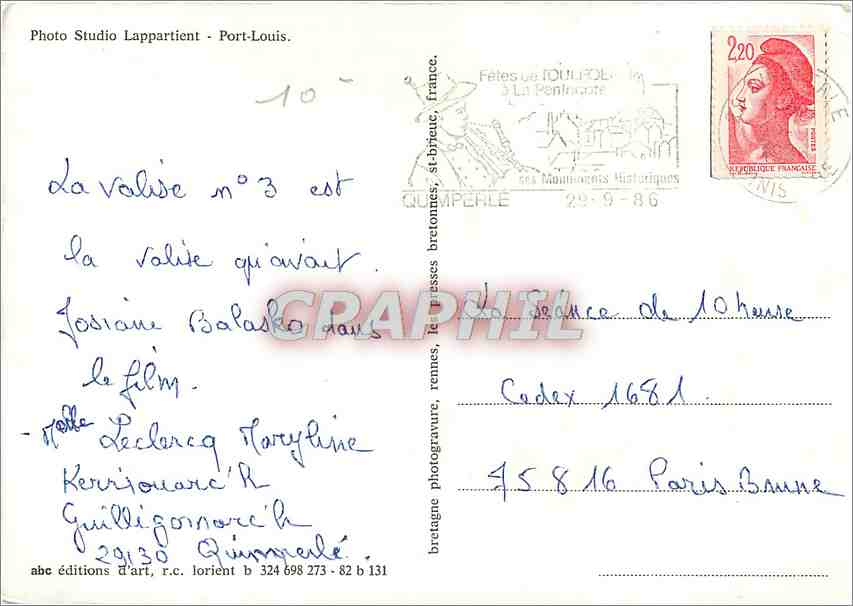 Photo Studio Lappartient - Port-Louis.
10 -
La valise n° 3 est
la valise qu'avait
Josiane Balasko dans
le film.
- Melle Leclercq Maryline
Kerriouarc'h
Guilligomarc'h
29130 Quimperlé.
abc éditions d'art, r.c. lorient b 324 698 273 - 82 b 131
bretagne photogravure, rennes, les presses bretonnes, st-brieuc, france.
Fêtes de TOULFOËN
à La Pentecôte
ses Monuments Historiques
QUIMPERLÉ
29-9-86
2,20
POSTES
REPUBLIQUE FRANÇAISE
La Séance de 10 heure
Cedex 1681.
75816 Paris Brune
CRAPHIL